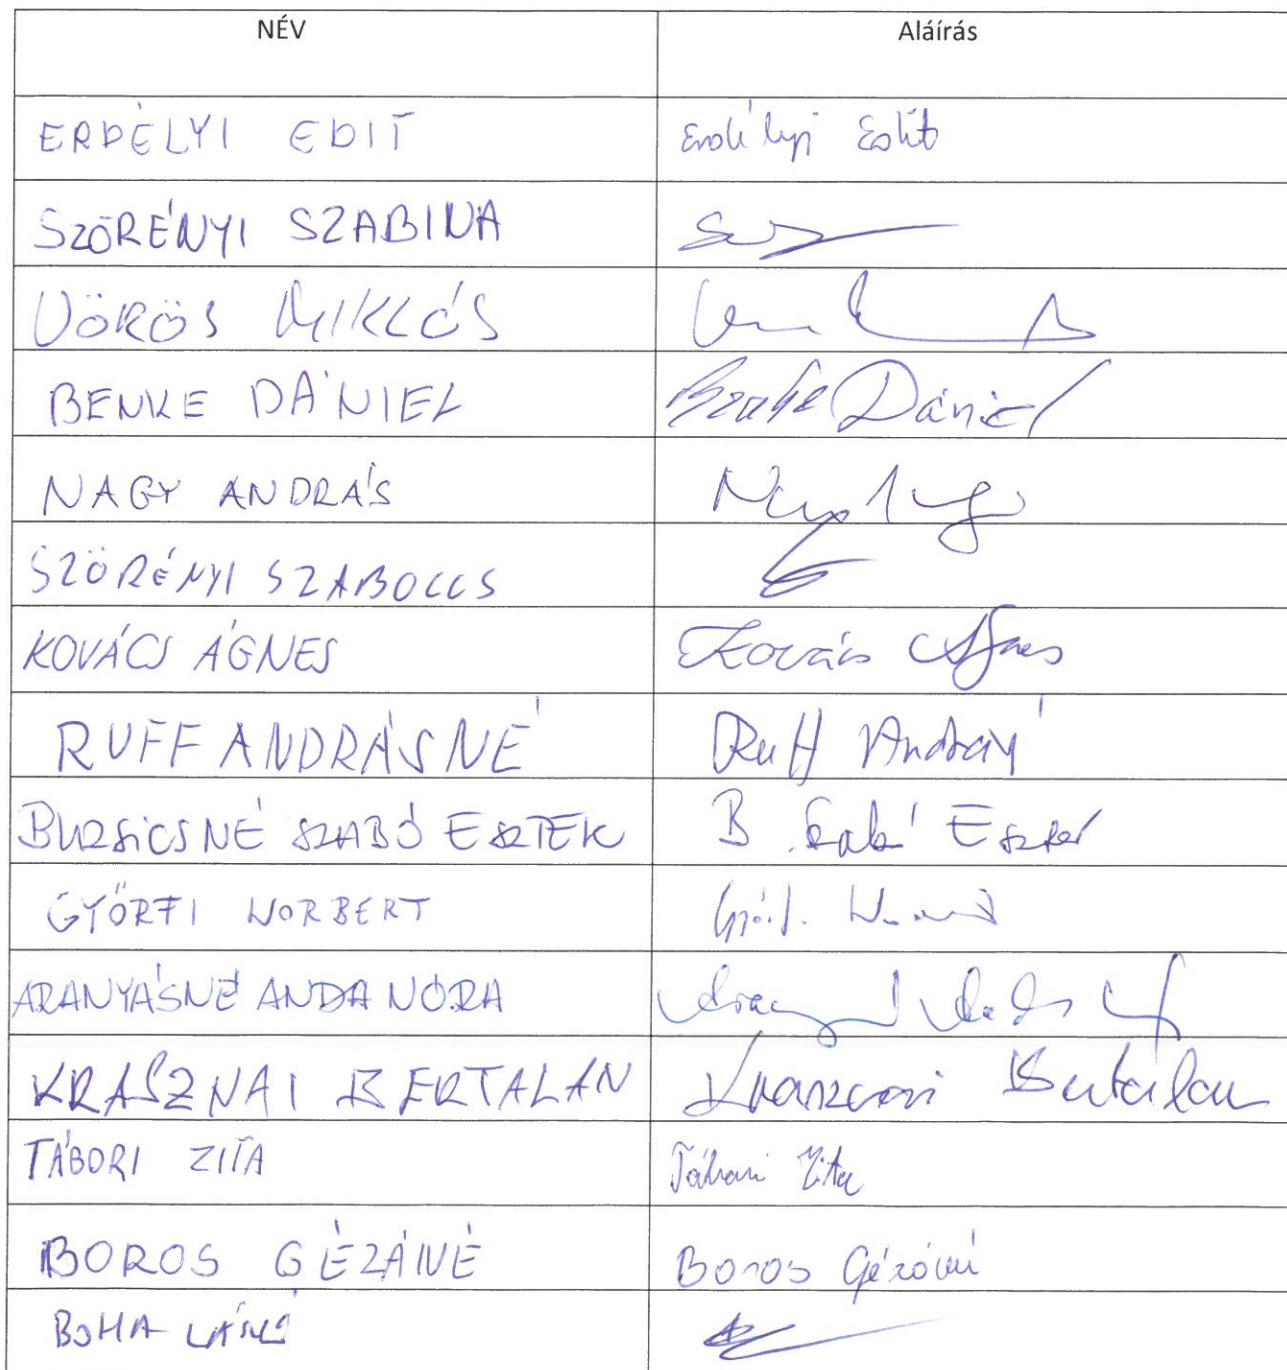 NÉV Aláírás
ERDÉLYI EDIT Erdélyi Edit
SZÖRÉNYI SZABINA
VÖRÖS MIKLÓS
BENKE DÁNIEL Benke Dániel
NAGY ANDRÁS
SZÖRÉNYI SZABOLCS
KOVÁCS ÁGNES Kovács Ágnes
RUFF ANDRÁSNÉ Ruff
BURSICSNÉ SZABÓ ESZTER B. Szabó Eszter
GYŐRFI NORBERT
ARANYÁSNÉ ANDA NÓRA
KRASZNAI BERTALAN Krasznai Bertalan
TÁBORI ZITA Tábori Zita
BOROS GÉZÁNÉ Boros Gézáné
BOHA LÁSZLÓ